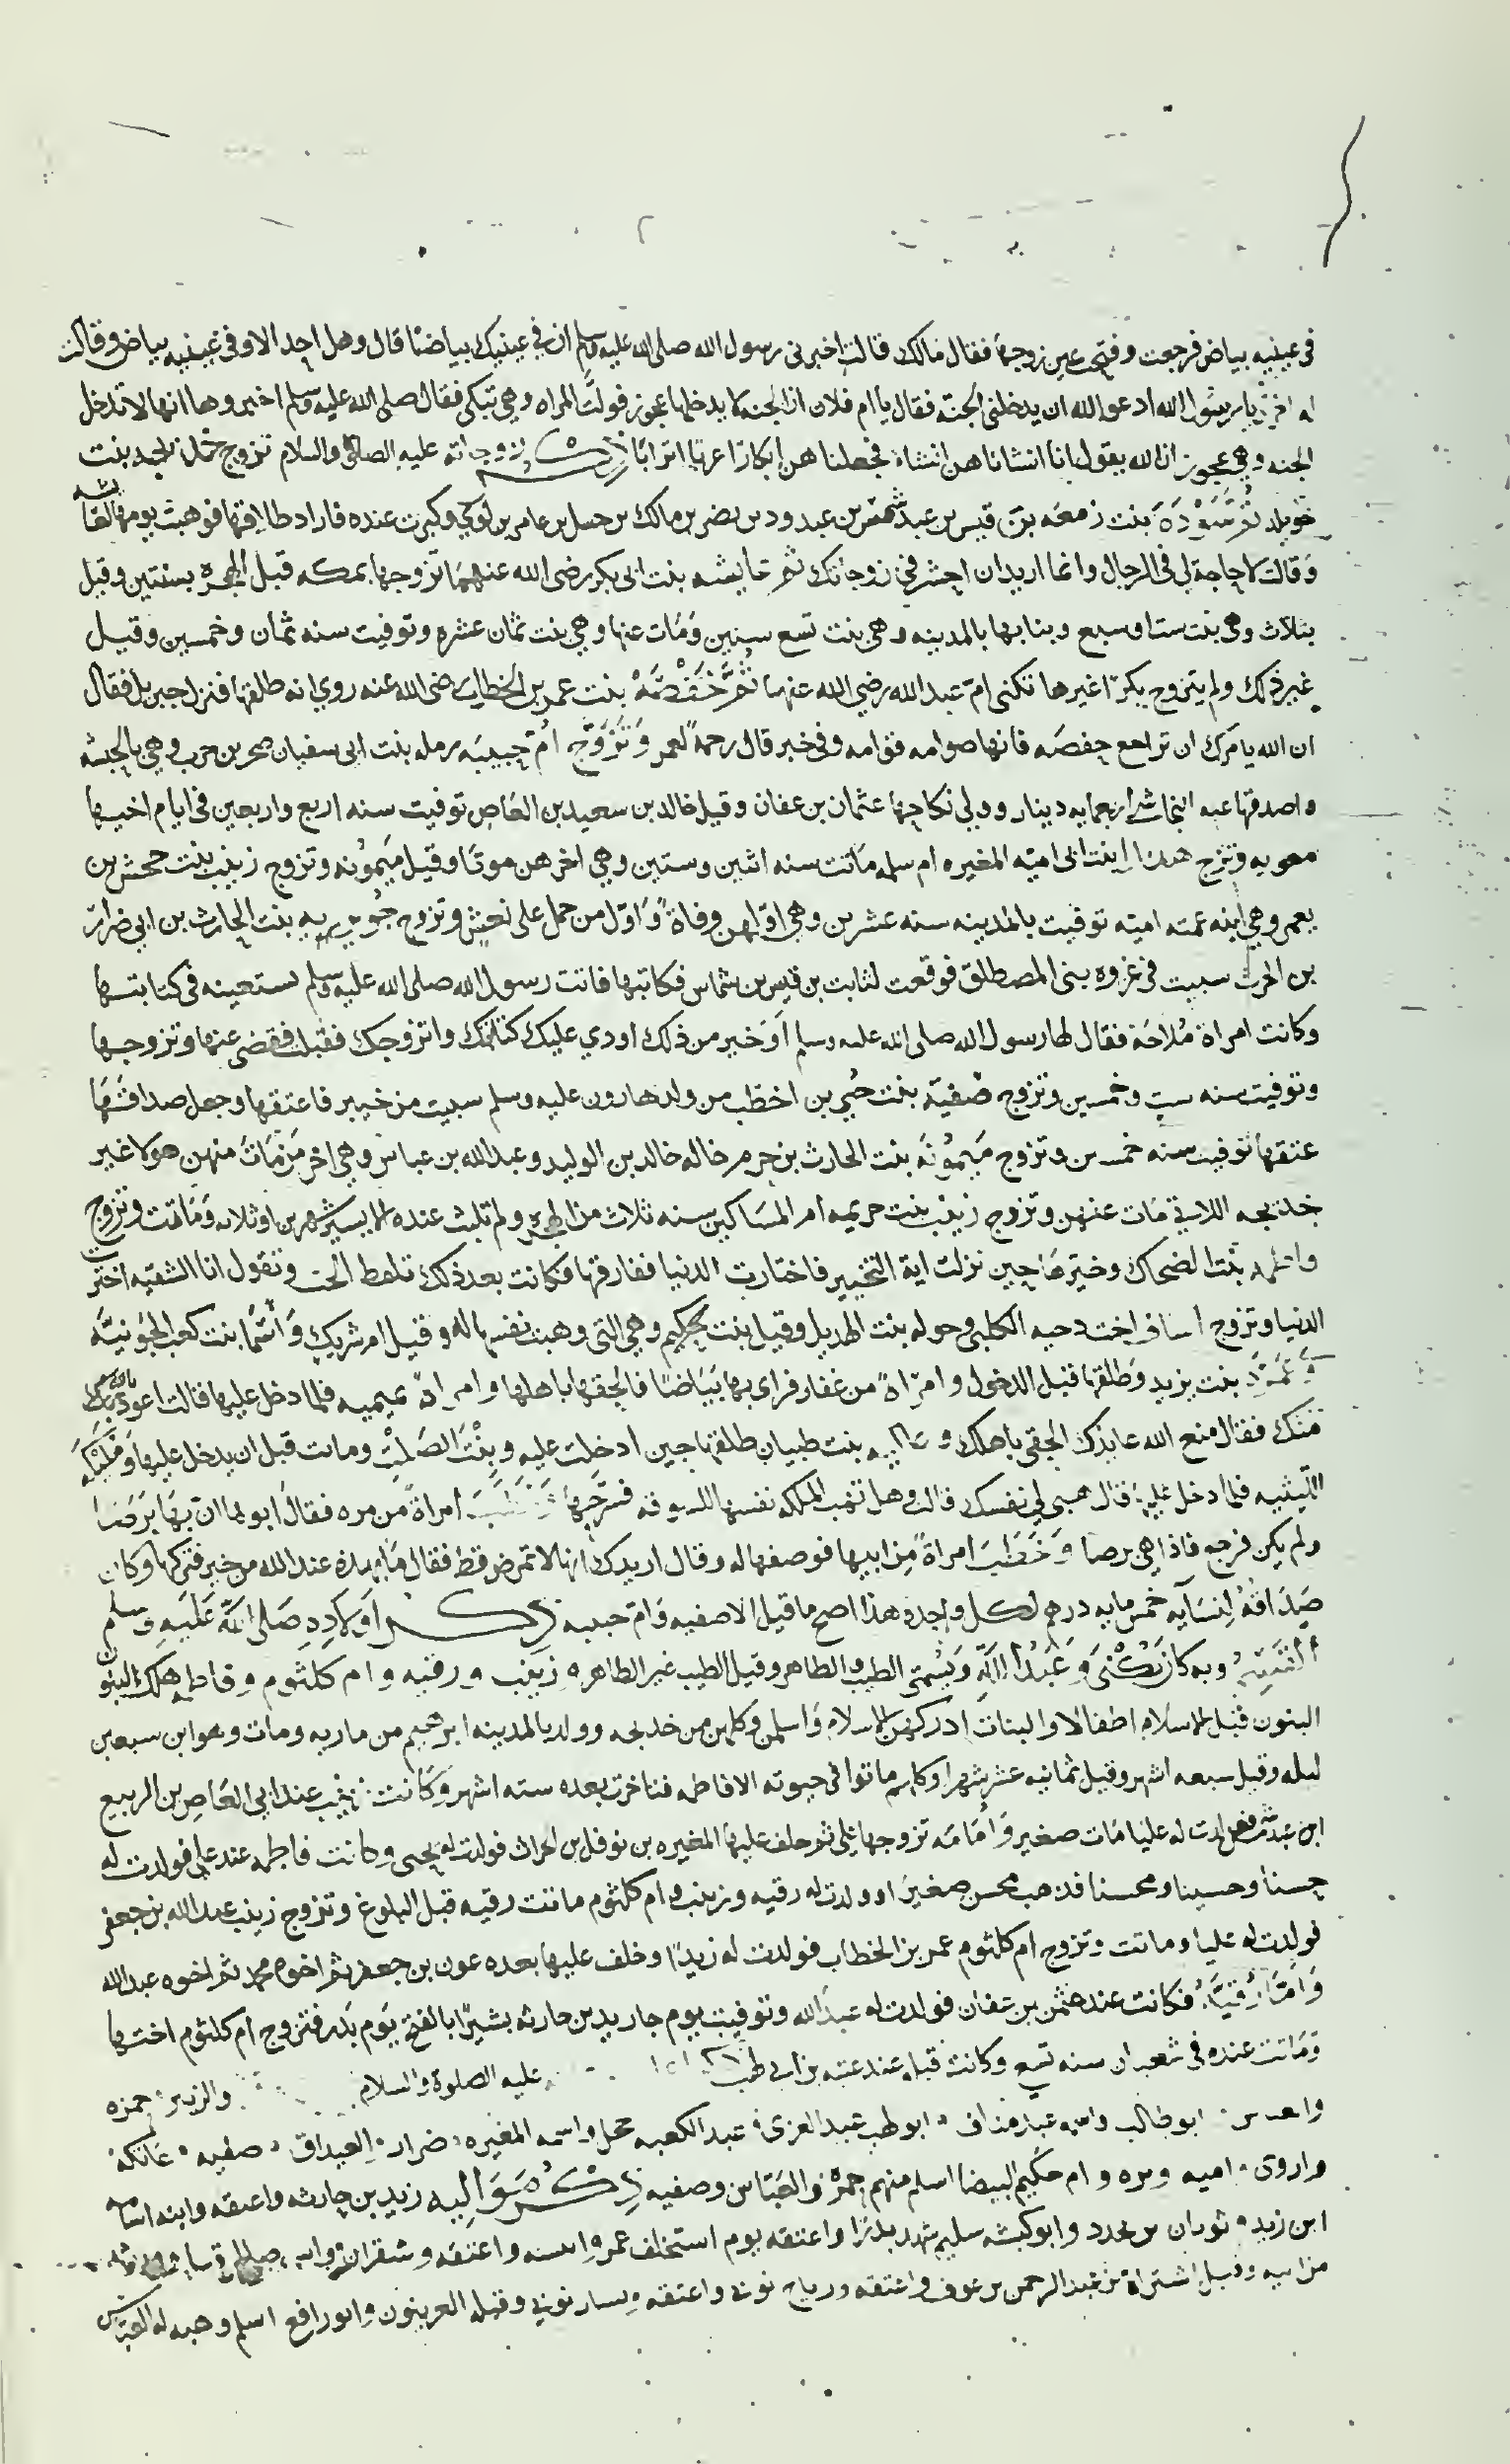 في عينيه بياض فرجعت وفتحت عين زوجها فقال مالك قالت اخبرني رسول الله صلى الله عليه وسلم ان في عينيك بياضا قال وهل احد الا وفي عينيه بياض وقالت
له اخرى يا رسول الله ادعو الله ان يدخلني الجنة فقال يا ام فلان ان الجنه لا يدخلها عجوز فولت المراه وهي تبكي فقال صلى الله عليه وسلم اخبروها انها لا تدخل
الجنه وهي عجوز ان الله يقول انا انشاناهن انشاء فجعلناهن ابكارا عربا اترابا ذكر زوجاته عليه الصلاة والسلام تزوج خديجه بنت
خويلد ثم سودة بنت زمعه بن قيس بن عبد شمس بن عبد ود بن نضر بن مالك بن حسل بن عامر بن لوي وكبرت عنده فاراد طلاقها فوهبت يومها لعائشه
وقالت لا حاجة لي في الرجال وانما اريد ان احشر في زوجاتك ثم عايشه بنت ابي بكر رضي الله عنهما تزوجها بمكه قبل الهجرة بسنتين وقيل
بثلاث وهي بنت ست او سبع وبنا بها بالمدينه وهي بنت تسع سنين ومات عنها وهي بنت ثمان عشره وتوفيت سنه ثمان وخمسين وقيل
غير ذلك ولم يتزوج بكرا غيرها تكنى ام عبد الله رضي الله عنها ثم حفصة بنت عمر بن الخطاب رضي الله عنه روي انه طلقها فنزل جبريل فقال
ان الله يامرك ان تراجع حفصه فانها صوامه قوامه وفي خبر قال رحمة لعمر وتزوج ام حبيبه رمله بنت ابي سفيان صخر بن حرب وهي بالحبشه
واصدقها عنه النجاشي اربعمايه دينار وولي نكاحها عثمان بن عفان وقيل خالد بن سعيد بن العاص توفيت سنه اربع واربعين في ايام اخيها
معويه وتزوج هندا ابنت ابي اميه المغيره ام سلمه ماتت سنه اثنين وستين وهي اخرهن موتا وقيل ميمونه وتزوج زينب بنت جحش بن
يعمر وهي ابنه عمته اميه توفيت بالمدينه سنه عشرين وهي اولهن وفاة واول من حمل على نعش وتزوج جويريه بنت الحارث بن ابي ضرار
بن الحرث سبيت في غزوه بني المصطلق فوقعت لثابت بن قيس بن شماس فكاتبها فاتت رسول الله صلى الله عليه وسلم تستعينه في كتابتها
وكانت امراة ملاحة فقال لها رسول الله صلى الله عليه وسلم او خير من ذلك اودي عليك كتابتك واتزوجك فقبلت فقضى عنها وتزوجها
وتوفيت سنه ست وخمسين وتزوج صفية بنت حيي بن اخطب من ولد هارون عليه وسلم سبيت من خيبر فاعتقها وجعل صداقها
عتقها توفيت سنه خمسين وتزوج ميمونة بنت الحارث بن حزم خاله خالد بن الوليد وعبد الله بن عباس وهي اخر من مات منهن هولا غير
خديجه اللاتي مات عنهن وتزوج زينب بنت خزيمه ام المساكين سنه ثلاث من الهجرة ولم تلبث عنده الا يسير شهرين او ثلاثه وماتت وتزوج
فاطمه بنت الضحاك وخيرها حين نزلت اية التخيير فاختارت الدنيا ففارقها فكانت بعد ذلك تلقط البعر وتقول انا الشقيه اخترت
الدنيا وتزوج اساف اخت دحيه الكلبي وخوله بنت الهذيل وقيل بنت حكيم وهي التي وهبت نفسها له وقيل ام شريك واسما بنت كعب الجونية
وعمرة بنت يزيد وطلقها قبل الدخول وامراة من غفار فراى بها بياضا فالحقها باهلها وامراة تميميه فلما دخل عليها قالت اعوذ بالله
منك فقال منع الله عايذك الحقي باهلك وعاليه بنت ظبيان طلقها حين ادخلت عليه وبنت الصلت وماتت قبل ان يدخل عليها ومليكه
الليثيه فلما دخل عليها قال هبي لي نفسك قالت وهل تهب الملكه نفسها للسوقه فسرحها وخطب امراة من مره فقال ابوها ان بها برصا
ولم يكن فرجع فاذا هي برصا وخطب امراة من ابيها فوصفها له وقال ازيدك انها لا تمرض قط فقال ما لهذه عند الله من خير فتركها وكان
صداقه لنسايه خمس مايه درهم لكل واحدة هذا اصح ما قيل الا صفيه وام حبيبه ذكر اولاده صلى الله عليه وسلم
القسم وبه كان يكنى وعبد الله ويسمى الطيب والطاهر وقيل الطيب غير الطاهر وزينب ورقيه وام كلثوم وفاطمه هلك البنون
البنون قبل الاسلام اطفالا والبنات ادركهن الاسلام واسلمن وكلهن من خديجه وولد بالمدينه ابرهيم من ماريه ومات وهو ابن سبعين
ليله وقيل سبعه اشهر وقيل ثمانيه عشر شهرا وكلهم ماتوا في حيوته الا فاطمه فتاخرت بعده سته اشهر وكانت زينب عند ابي العاص بن الربيع
ابن عبد شمس فولدت له عليا مات صغير وامامه تزوجها علي ثم خلف عليها المغيره بن نوفل بن الحراث فولدت له يحيى وكانت فاطمه عند علي فولدت له
حسنا وحسينا ومحسنا فذهب محسن صغيرا وولدت له رقيه وزينب وام كلثوم ماتت رقيه قبل البلوغ وتزوج زينب عبد الله بن جعفر
فولدت له عليا وماتت وتزوج ام كلثوم عمر بن الخطاب فولدت له زيدا وخلف عليها بعده عون بن جعفر ثم اخوه محمد ثم اخوه عبد الله
واما رقية فكانت عند عثمن بن عفان فولدت له عبد الله وتوفيت يوم جا زيد بن حارثه بشيرا بالفتح يوم بدر فتزوج ام كلثوم اختها
وماتت عنده في شعبان سنه تسع وكانت قبله عند عتبه بن ابي لهب عليه الصلوة والسلام والزبير حمزه
ابو طالب واسمه عبد مناف ابو لهب عبد العزى عبد الكعبه حجل واسمه المغيره ضرار الغيداق صفيه عاتكه
واروى اميه وبره وام حكيم البيضا اسلم منهم حمزة والعباس وصفيه ذكر مواليه زيد بن حارثه واعتقه وابنه اسامه
ابن زيد ثوبان بن بجدد وابو كبشه سليم شهد بدرا واعتقه يوم استخلف عمر وانسه واعتقه وشقران واسمه صالح
من ابيه وقيل اشتراه من عبد الرحمن بن عوف واعتقه ورباح نوبي واعتقه ويسار نوبي وقتله العرينون وابو رافع اسلم وهبه له العباس